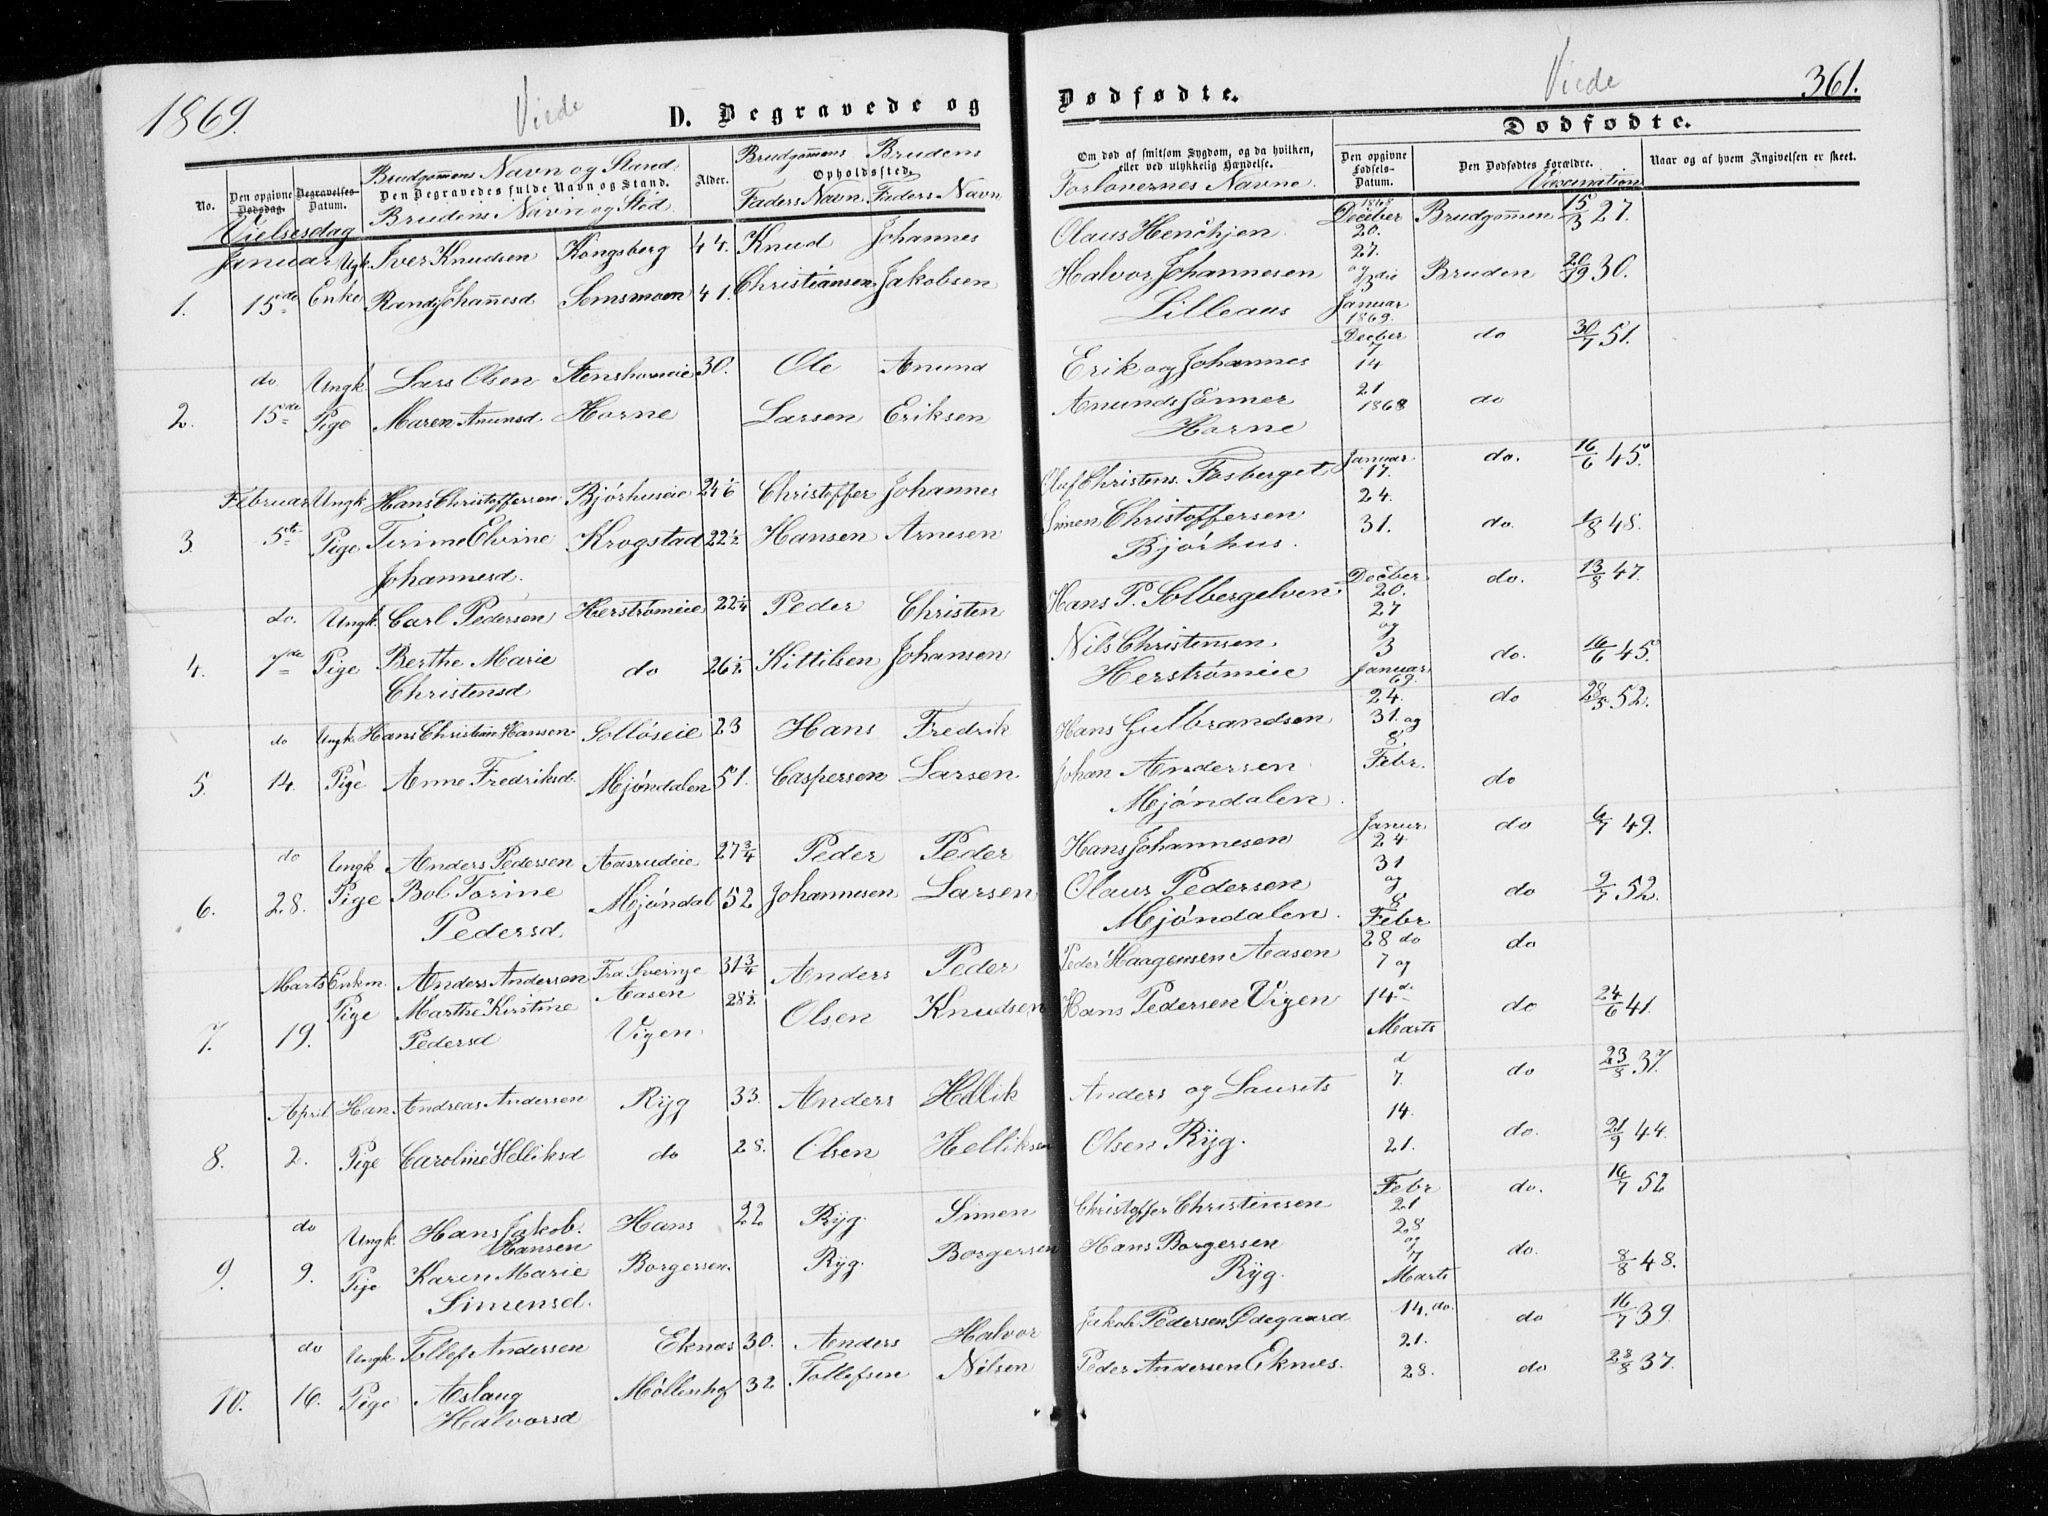 1869. Viede D. Begravede og
Dødfødte. Viede 361.
Dødfødte.
No. Den opgivne Dødsdag. Begravelses-Datum. Den Begravedes fulde Navn og Stand. Alder. Opholdssted.
Brudgommens Navn og Stand. Brudens Navn og Sted
Vielsesdag
Brudgommens Brudens
Faders Navn Faders Navn
Om død af smitsom Sygdom, og da hvilken, eller ved ulykkelig Hændelse. Den opgivne Fødsels-Datum. Den Dødfødtes Forældre. Naar og af hvem Angivelsen er skeet.
Forlovernes Navne. Vaccination
Januar Ungk. Iver Knudsen Kongsberg 44. Knud Johannes
1. 15de Enke Rand. Johannesd Semsmoen 41. Christiansen Jakobsen
do Ungk. Lars Olsen Stenshorneie 30. Ole Amund
2. 15de Pige Maren Amunsd Horne Larsen Eriksen
Februar Ungk. Hans Christoffersen Bjørhuseie 24 1/6 Christoffer Johannes
3. 5te Pige Tirine Elvine Krogstad 22 1/2 Hansen Arnesen
Johannesd.
do. Ungk. Carl Pedersen Herstrømeie 22 1/4 Peder Christen
4. 7de Pige Berthe Marie do 26 1/2 Kittilsen Johansen
Christensd
do Ungk. Hans Christian Hansen Solløseie 23 Hans Fredrik
5. 14. Pige Anne Fredriksd. Mjøndalen 51. Caspersen Larsen
do Ungk Anders Pedersen Aasrudeie 27 3/4 Peder Peder
6. 28. Pige Bol. Torine Mjøndal 52 Johannesen Larsen
Pedersd.
Marts Enkm. Anders Andersen Fra Sverrige 31 3/4 Anders Peder
Pige Marthe Kirstine Aasen 28 1/2 Olsen Knudsen
7. 19. Pedersd Vigen
April Han. Andreas Andersen Ryg 33. Anders Hellik
8. 2. Pige Caroline Helliksd do 28. Olsen Helliksen
do Ungk. Hans Jakob. Hans 22 Ryg. Simen
Hansen
9. 9. Pige Karen Marie Borgersen. Ryg. Borgersen
Simensd.
do Ungk. Tollef Andersen Eknæs 30. Anders Halvor
10. 16. Pige Aslaug Møllenhof 32 Tollefsen Nilsen
Halvorsd
Olaus Henchjen. 1868 Deceber 20. Brudgommen 15/3 27.
27.
Halvor Johannesen og 3die Bruden 20/19 30.
Lilleaas Januar 1869.
Decber 7 do 30/7 51.
Erik og Johannes 14
21
Amunds Sønner 1868 do
Horne
Oluf Christens. Fosberget Januar 17. do. 16/6 45.
24.
Simen Christoffersen 31. do. 1/8 48.
Bjørhus.
Hans P. Solbergelven Decber 20. do. 13/8 47.
27 og
Nils Christensen 3 do. 16/6 45.
Herstrømeie Januar 69.
Hans Gulbrandsen 24. 31. og 8 do 28/5 52.
Johan Andersen Febr. do
Mjøndalen.
Hans Johannesen Janur 24 do 6/7 49.
31
Olaus Pedersen og 8 do 2/7 52.
Mjøndalen. Febr
Peder Haagensen Aasen 28 do do
7 og
Hans Pedersen Vigen 14d. do 24/6 41.
Marts
Anders og Laurits d 7. do 23/8 37.
14.
Olsen Ryg. 21. do. 21/9 44.
Christoffer Christensen Febr 21 do. 16/7 52
28 og
Hans Borgersen 7 do. 8/8 48.
Ryg. Marts
Jakob Pedersen Ødegaard 14. do. do 16/7 39.
21.
Peder Andersen Eknæs. 28. do 28/8 37.